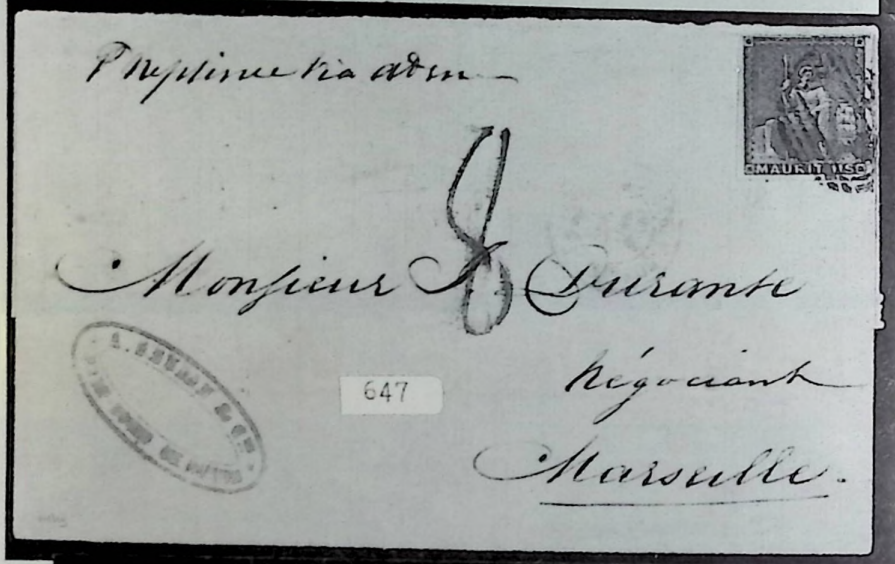 P Neptune via aden
MAURITIUS
8
Monsieur J. Durante
647
négociant
Marseille.
& Cie